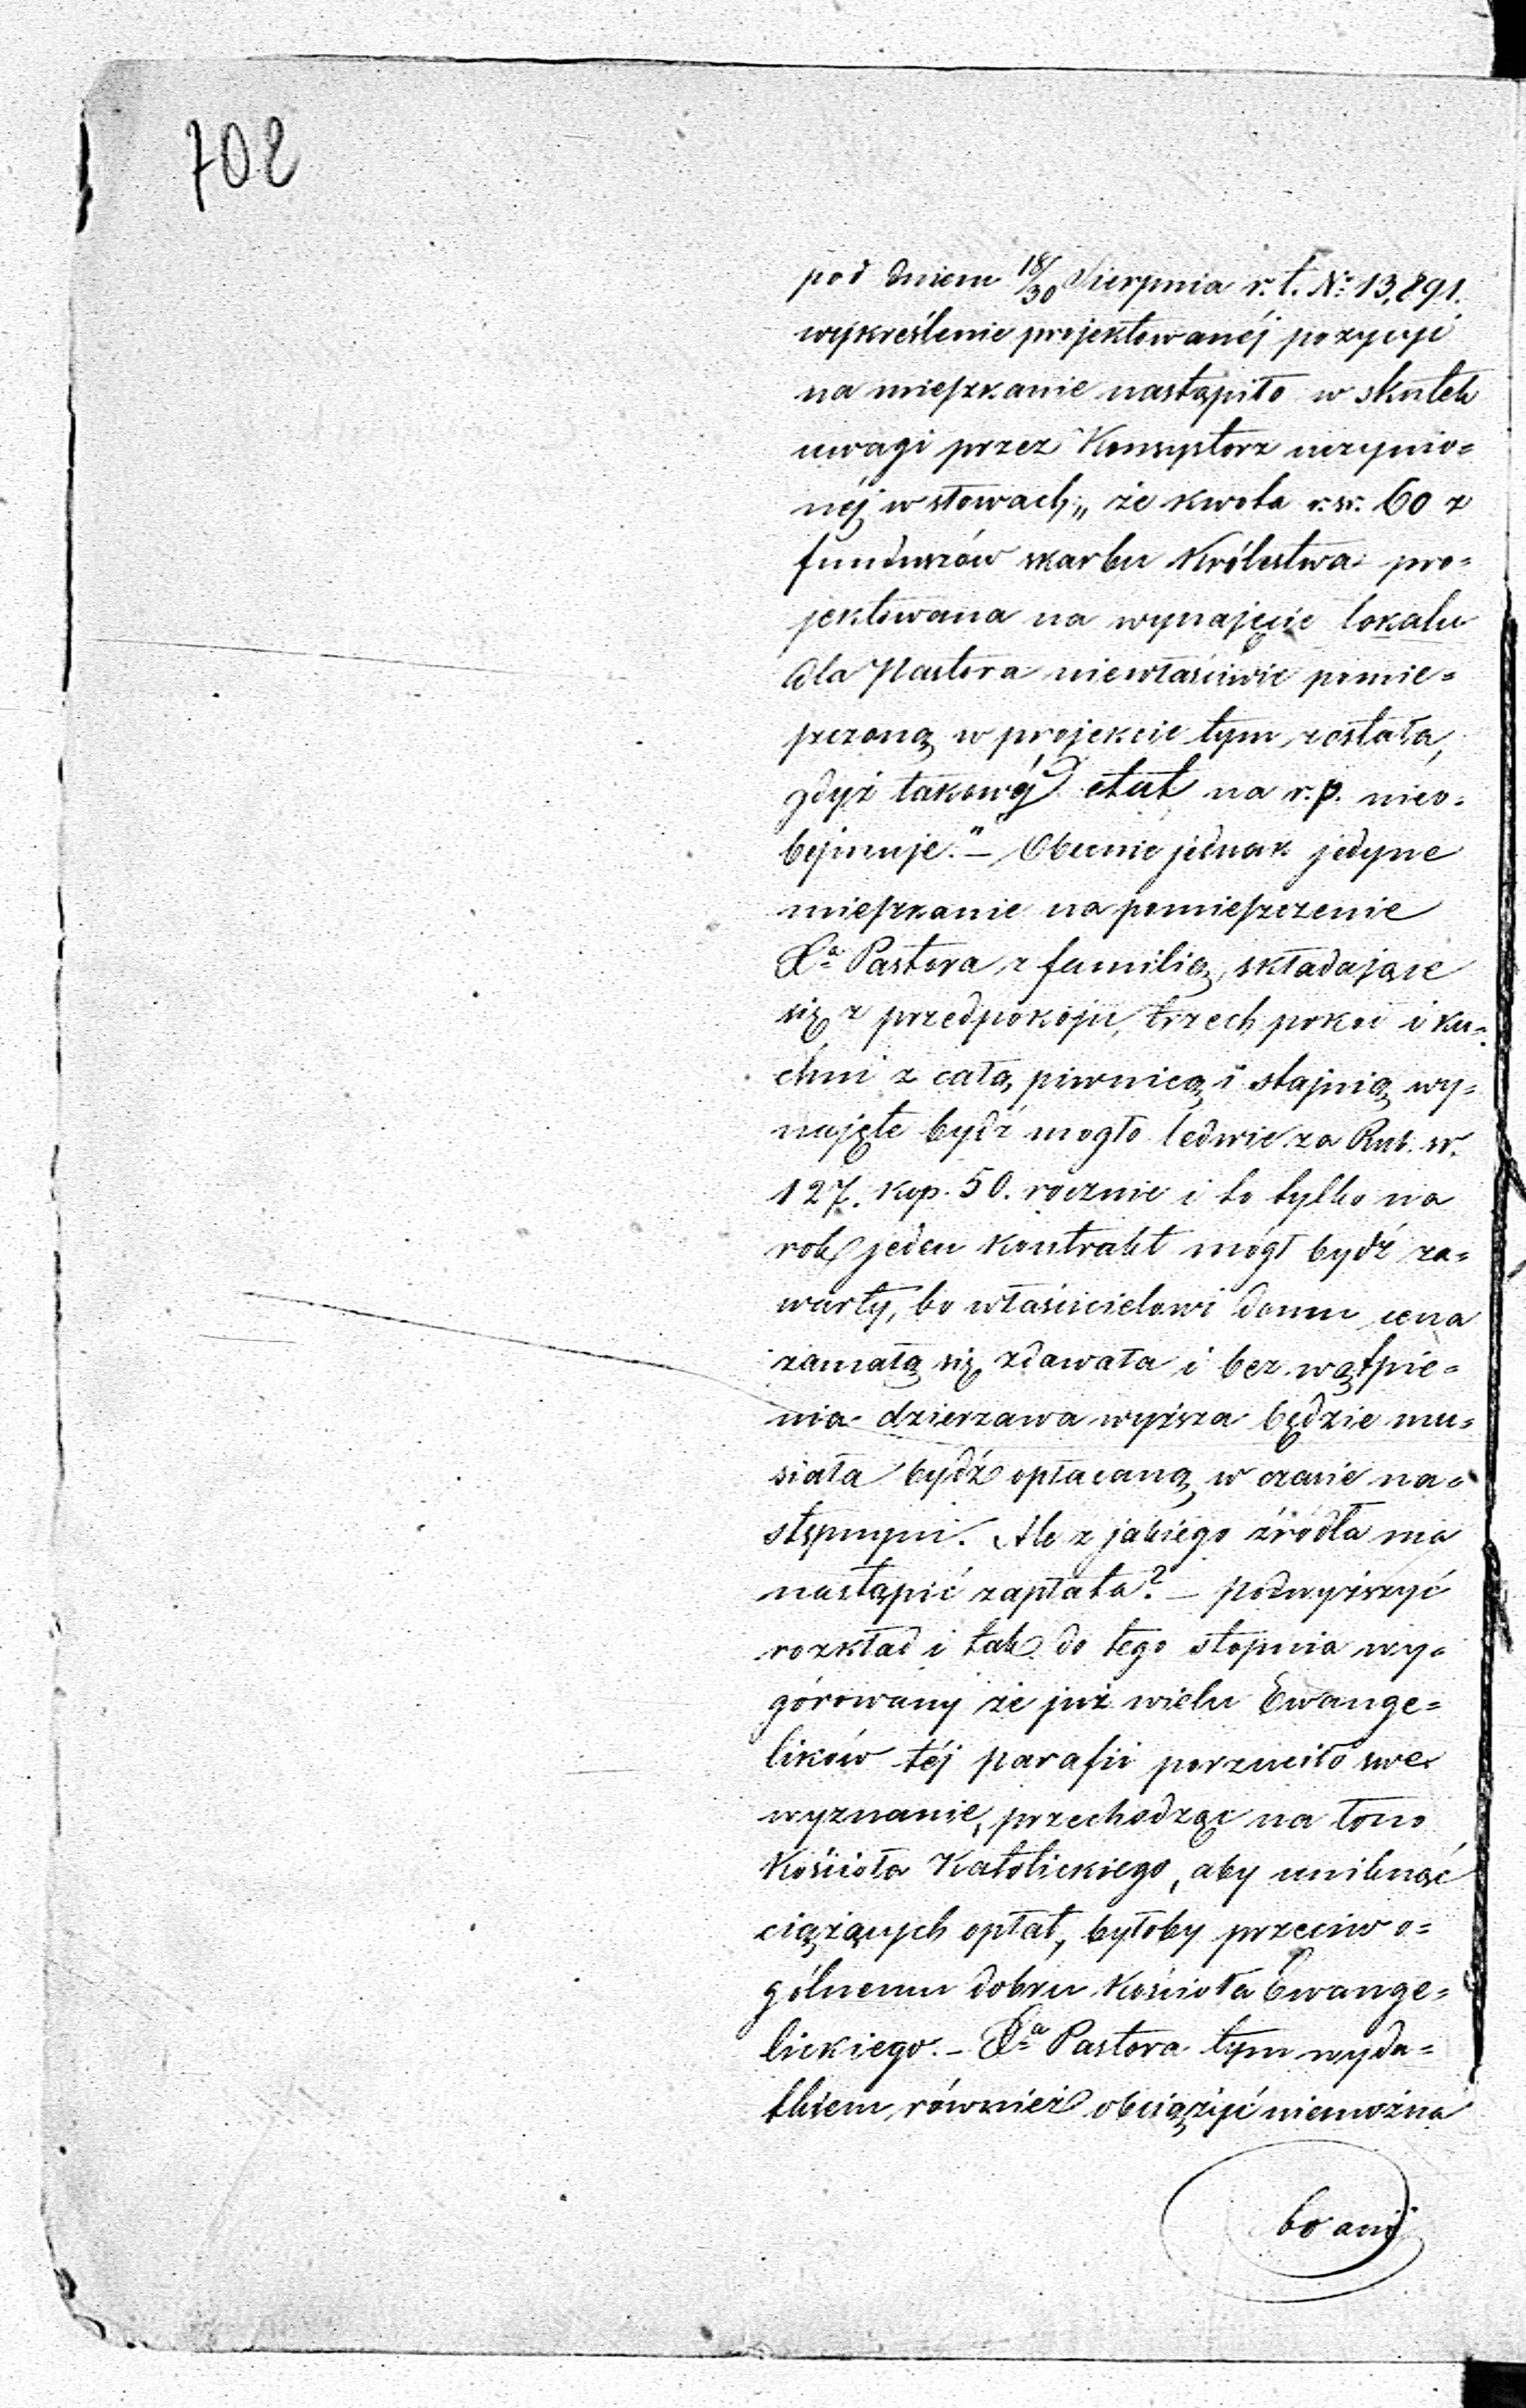 702
pod dniem 18/30 Sierpnia r.t. № 13,891.
wykreślenie projektowanéj pozycyi
na mieszkanie nastąpiło w skutek
uwagi przez Konsystorz uczynio=
néj w słowach: „że kwota r.sr. 60 z
funduszów skarbu Królestwa pro=
jektowana na wynajęcie lokalu
dla Pastora niewłaściwie pomie=
szczoną w projekcie tym została,
gdyż takowéj etat na r.p. nieo=
bejmuje." – Obecnie jednak jedyne
mieszkanie na pomieszczenie
Xa Pastora z familią, składające
się z przedpokoju, trzech pokoi i ku=
chni z całą piwnicą i stajnią wy=
najęte bydź mogło ledwie za Rub. sr.
127. kop. 50. rocznie i to tylko na
rok jeden kontrakt mógł bydź za=
warty, bo właścicielowi domu cena
zamałą się zdawała i bez wątpie=
nia dzierzawa wyższa będzie mu=
siała bydź opłacaną w czasie na=
stępnym. Ale z jakiego źródła ma
nastąpić zapłata? – podwyższyć
rozkład i tak do tego stopnia wy=
górowany że już wielu Ewange=
lików téj parafii porzuciło swe
wyznanie, przechodząc na łono
Kościoła Katolickiego, aby uniknąć
ciążących opłat, byłoby przeciw o=
gólnemu dobru Kościoła Ewange=
lickiego. – Xa Pastora tym wyda=
tkiem również obciążyć niemożna
bo ani